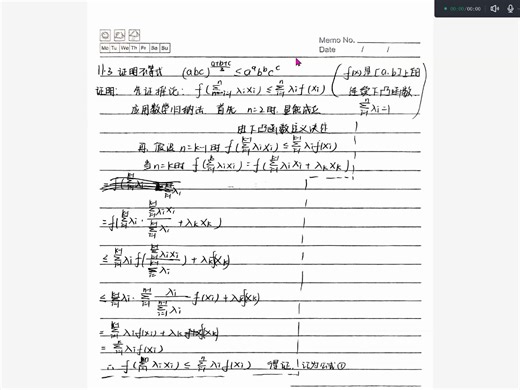 00:00:00 / 00:00:00
Memo No.
Mo Tu We Th Fr Sa Su
Date / /
113 证明不等式 (abc)^{\frac{a+b+c}{3}} ≤ a^a b^b c^c
f(x)是[a,b]上的
连续下凸函数
\sum_{i=1}^{n} λi=1
证明: 先证推论: f(\sum_{i=1}^{n} λi xi) ≤ \sum_{i=1}^{n} λi f(xi)
应用数学归纳法 首先 n=2时 显然成立
由下凸函数定义
再假设 n=k-1时 f(\sum_{i=1}^{k-1} λi xi) ≤ \sum_{i=1}^{k-1} λi f(xi)
当n=k时 f(\sum_{i=1}^{k} λi xi) = f(\sum_{i=1}^{k-1} λi xi + λk xk)
= f(\sum_{i=1}^{k-1} λi · \frac{\sum_{i=1}^{k-1} λi xi}{\sum_{i=1}^{k-1} λi} + λk xk)
≤ \sum_{i=1}^{k-1} λi f(\frac{\sum_{i=1}^{k-1} λi xi}{\sum_{i=1}^{k-1} λi}) + λk f(xk)
≤ \sum_{i=1}^{k-1} λi · \sum_{i=1}^{k-1} \frac{λi}{\sum_{i=1}^{k-1} λi} f(xi) + λk f(xk)
= \sum_{i=1}^{k-1} λi f(xi) + λk f(xk)
= \sum_{i=1}^{k} λi f(xi)
∴ f(\sum_{i=1}^{n} λi xi) ≤ \sum_{i=1}^{n} λi f(xi) 得证. 记为公式①